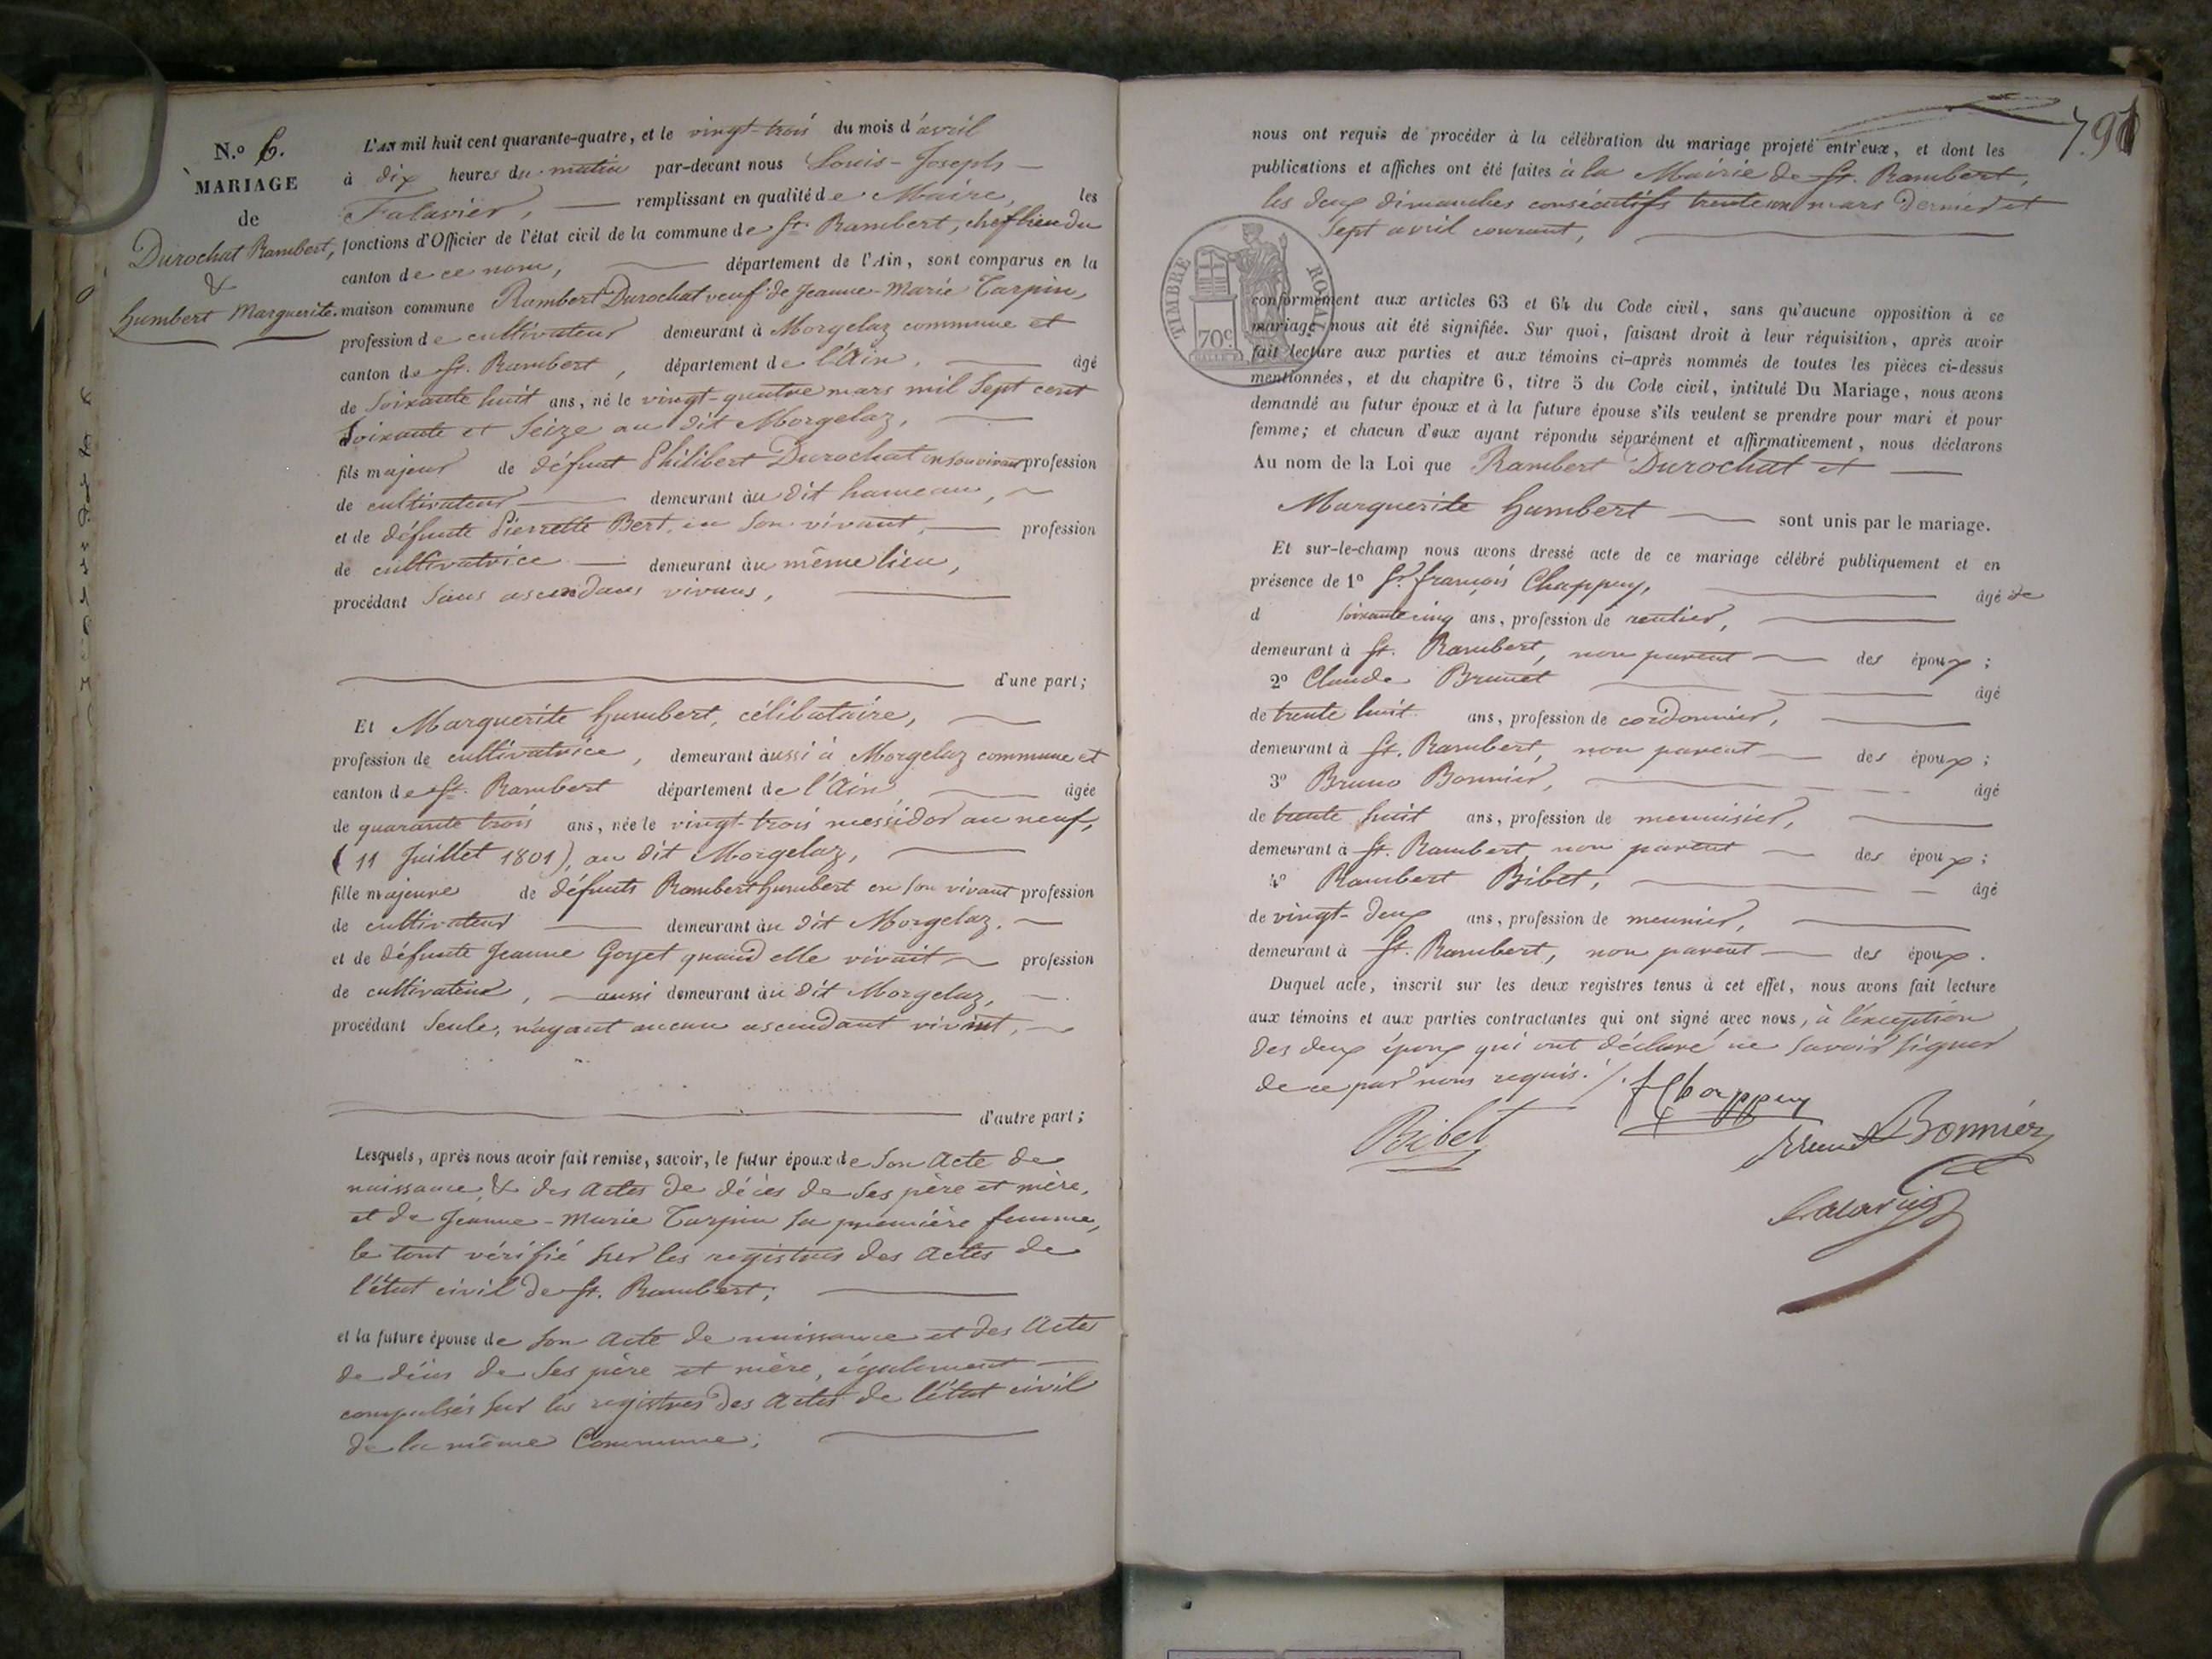 N.º 6.
MARIAGE
de
Durochat Rambert,
&
Humbert Marguerite.
L'AN mil huit cent quarante-quatre, et le vingt-trois du mois d'avril
à dix heures du matin par-devant nous Louis-Joseph
Falavier, remplissant en qualité de Maire, les
fonctions d'Officier de l'état civil de la commune de St. Rambert, chef lieu du
canton de ce nom, département de l'Ain, sont comparus en la
maison commune Rambert Durochat veuf de Jeanne-Marie Tarpin,
profession de cultivateur demeurant à Morgelaz commune et
canton de St. Rambert, département de l'Ain, âgé
de soixante huit ans, né le vingt-quatre mars mil sept cent
soixante et seize au dit Morgelaz,
fils majeur de défunt Philibert Durochat en son vivant profession
de cultivateur demeurant au dit hameau,
et de défunte Pierrette Bert, en son vivant, profession
de cultivatrice demeurant au même lieu,
procédant sans ascendans vivans,
d'une part;
Et Marguerite Humbert, célibataire,
profession de cultivatrice, demeurant aussi à Morgelaz commune et
canton de St. Rambert département de l'Ain âgée
de quarante trois ans, née le vingt-trois messidor an neuf,
(11 Juillet 1801), au dit Morgelaz,
fille majeure de défunts Rambert Humbert en son vivant profession
de cultivateur demeurant au dit Morgelaz.
et de défunte Jeanne Goyet quand elle vivait profession
de cultivateur, aussi demeurant au dit Morgelaz,
procédant seule, n'ayant aucun ascendant vivant,
d'autre part;
Lesquels, après nous avoir fait remise, savoir, le futur époux de son Acte de
naissance, & des Actes de décès de ses père et mère,
et de Jeanne-Marie Tarpin sa première femme,
le tout vérifié sur les registres des Actes de
l'état civil de St. Rambert;
et la future épouse de son Acte de naissance et des Actes
de décès de ses père et mère, également
compulsés sur les registres des Actes de l'état civil
de la même Commune;
nous ont requis de procéder à la célébration du mariage projeté entr'eux, et dont les
publications et affiches ont été faites à la Mairie de St. Rambert,
les deux dimanches consécutifs trente un mars dernier et
sept avril courant,
TIMBRE ROYAL
70c.
conformément aux articles 63 et 64 du Code civil, sans qu'aucune opposition à ce
mariage nous ait été signifiée. Sur quoi, faisant droit à leur réquisition, après avoir
fait lecture aux parties et aux témoins ci-après nommés de toutes les pièces ci-dessus
mentionnées, et du chapitre 6, titre 5 du Code civil, intitulé Du Mariage, nous avons
demandé au futur époux et à la future épouse s'ils veulent se prendre pour mari et pour
femme; et chacun d'eux ayant répondu séparément et affirmativement, nous déclarons
Au nom de la Loi que Rambert Durochat et
Marguerite Humbert sont unis par le mariage.
Et sur-le-champ nous avons dressé acte de ce mariage célébré publiquement et en
présence de 1º Sr. françois Chappuy, âgé de
d soixante cinq ans, profession de rentier,
demeurant à St. Rambert, non parent des époux;
2º Claude Brunet âgé
de trente huit ans, profession de cordonnier,
demeurant à St. Rambert, non parent des époux;
3º Bruno Bonnier, âgé
de trente huit ans, profession de menuisier,
demeurant à St. Rambert, non parent des époux;
4º Rambert Bibet, âgé
de vingt-deux ans, profession de meunier,
demeurant à St. Rambert, non parent des époux.
Duquel acte, inscrit sur les deux registres tenus à cet effet, nous avons fait lecture
aux témoins et aux parties contractantes qui ont signé avec nous, à l'exception
des deux époux qui ont déclaré ne savoir signer
de ce par nous requis.
Chappuy
Bibet
Bonnier